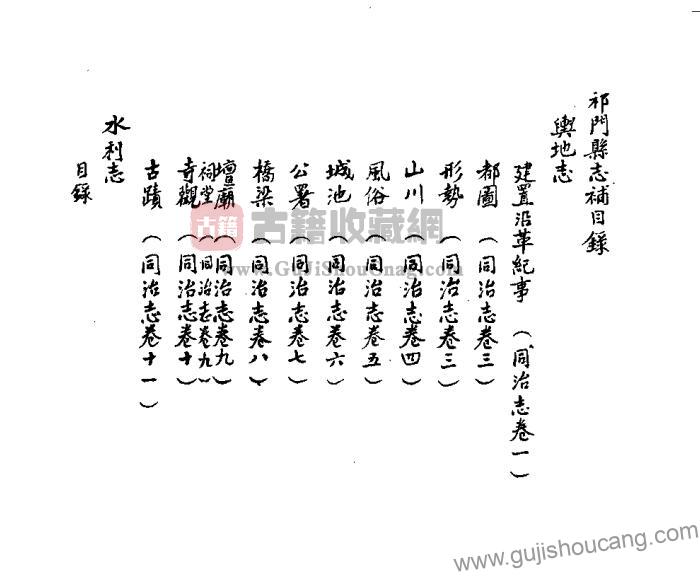 祁門縣志補目錄
輿地志
建置沿革紀事（同治志卷一）
都圖（同治志卷三）
形勢（同治志卷三）
山川（同治志卷四）
風俗（同治志卷五）
城池（同治志卷六）
公署（同治志卷七）
橋梁（同治志卷八）
壇廟（同治志卷九）
祠堂（同治志卷九）
寺觀（同治志卷十）
古蹟（同治志卷十一）
水利志
目錄
古籍
古籍收藏網
www.GuJiShouCang.com
www.gujishoucang.com